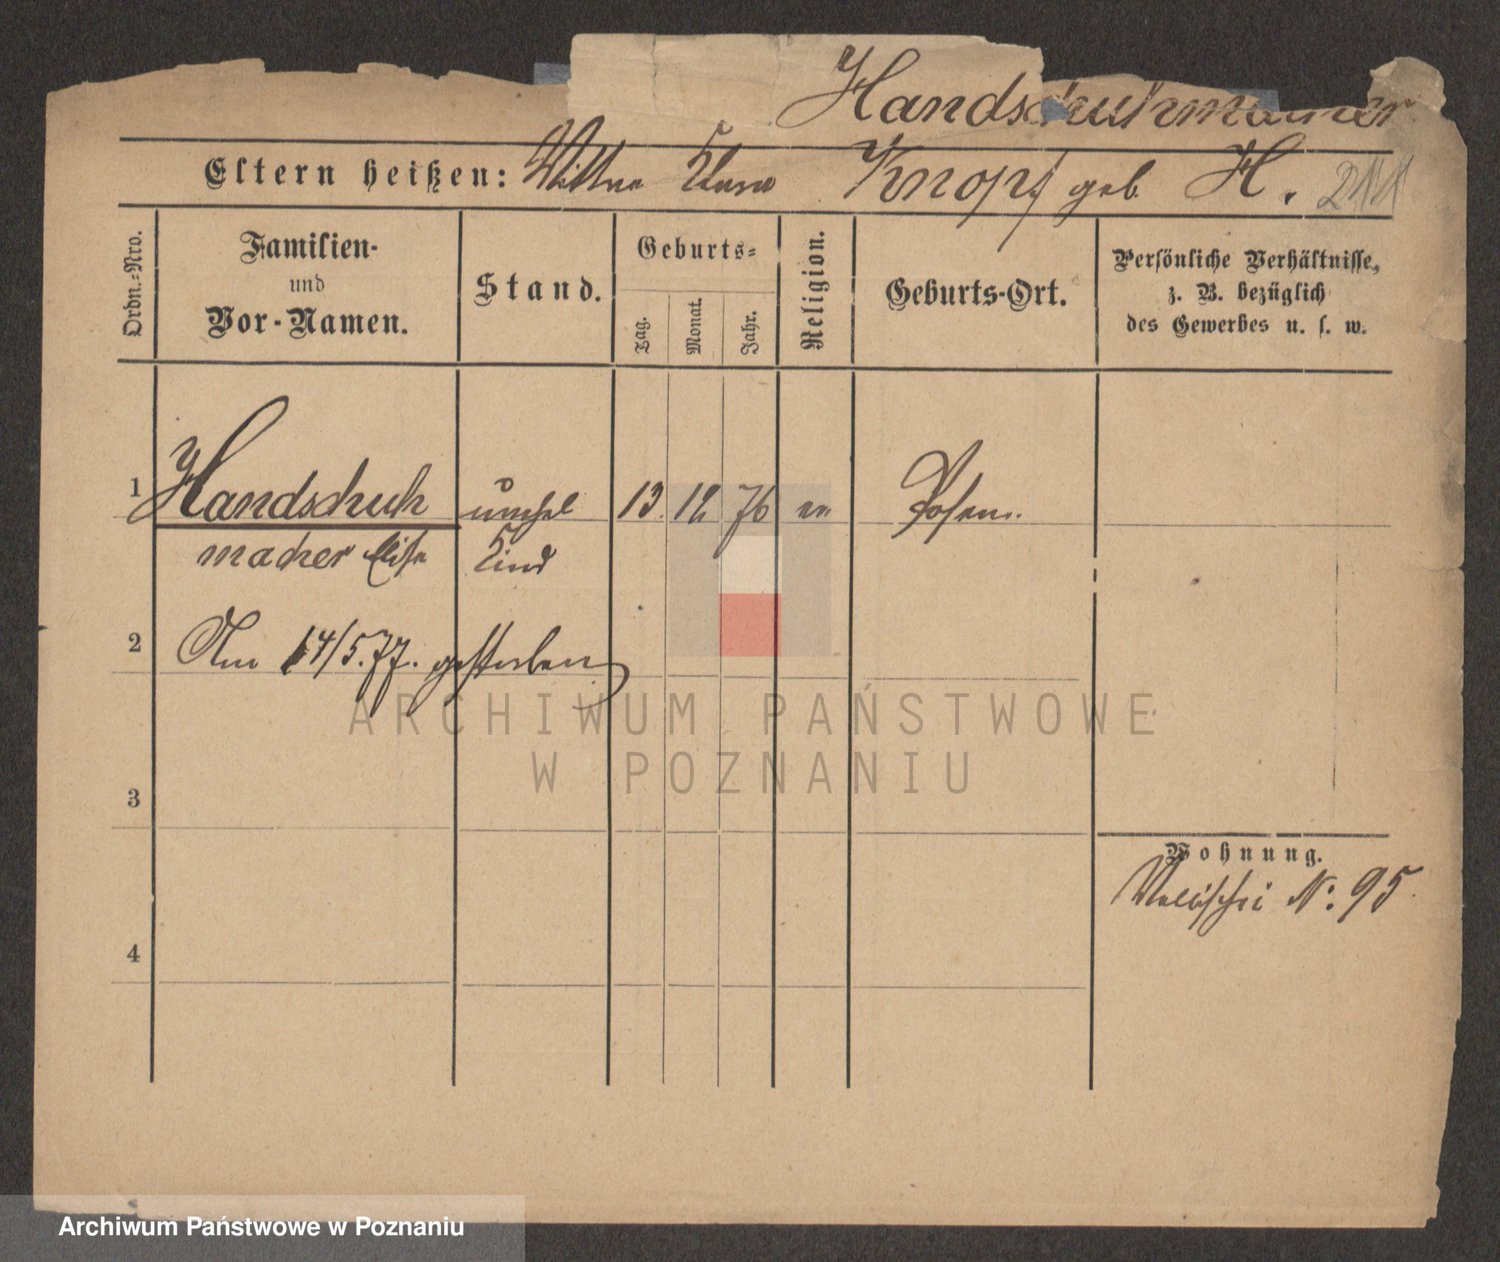 Handschuhmacher
Eltern heißen: Wittwe Knopf geb. H. 211
Ordn.-Nro.
Familien-
und
Vor-Namen.
Stand.
Geburts-
Tag.
Monat.
Jahr.
Religion.
Geburts-Ort.
Persönliche Verhältnisse,
z. B. bezüglich
des Gewerbes u. s. w.
1 Handschuh unehel 13. 12 76 ev Posen.
macher Elise Kind
2 Am 14/5.77. gestorben
3
4
Wohnung.
Wallischei No: 95
ARCHIWUM PAŃSTWOWE
W POZNANIU
Archiwum Państwowe w Poznaniu